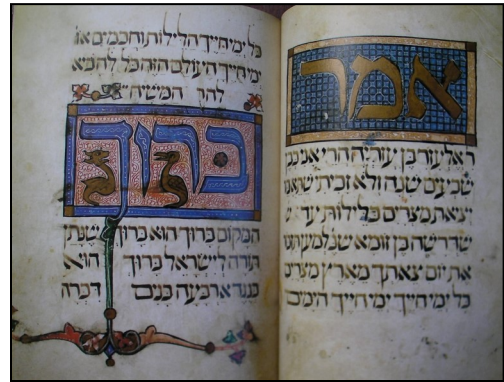 אמר
ר אלעזר בן עזריה הרי אני כבן
שבעים שנה ולא זכיתי
יציאת מצרים בלילות עד ש
שדרשה בן זומא שנ למען תזכר
את יום צאתך מארץ מצרים
כל ימי חייך ימי חייך הימים
כל ימי חייך הלילות וחכמים או
ימי חייך העולם הזה כל להביא
המשיח
ברוך
המקום ברוך הוא ברוך שנתן
תורה לישראל ברוך הוא
כנגד ארבעה בנים דברה